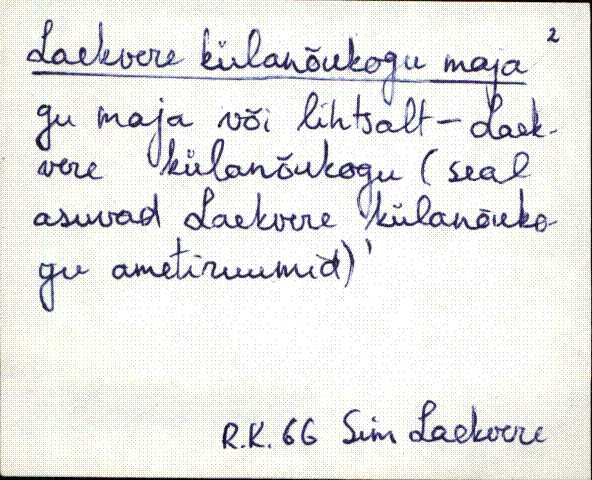 Laekvere külanõukogu maja 2
gu maja või lihtsalt – Laek-
vere külanõukogu (seal
asuvad Laekvere külanõuko-
gu ametiruumid)'
R.K. 66 Sim Laekvere